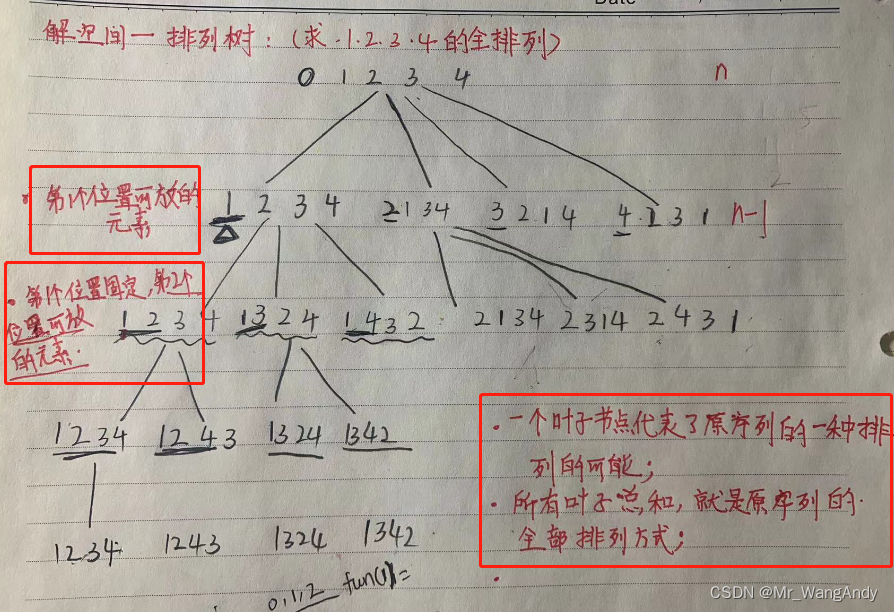 解空间一排列树:(求.1.2.3.4的全排列)
0 1 2 3 4 n
第1个位置可放的
元素
1 2 3 4 2134 3214 4.231 n-1
第1个位置固定,第2个
位置可放
的元素.
1234 1324 1432 2134 2314 2431
1234 1243 1324 1342
1234 1243 1324 1342
一个叶子节点代表了原序列的一种排
列的可能;
所有叶子总和,就是原序列的
全部排列方式;
0,1,2 fun(1)=
CSDN @Mr_WangAndy